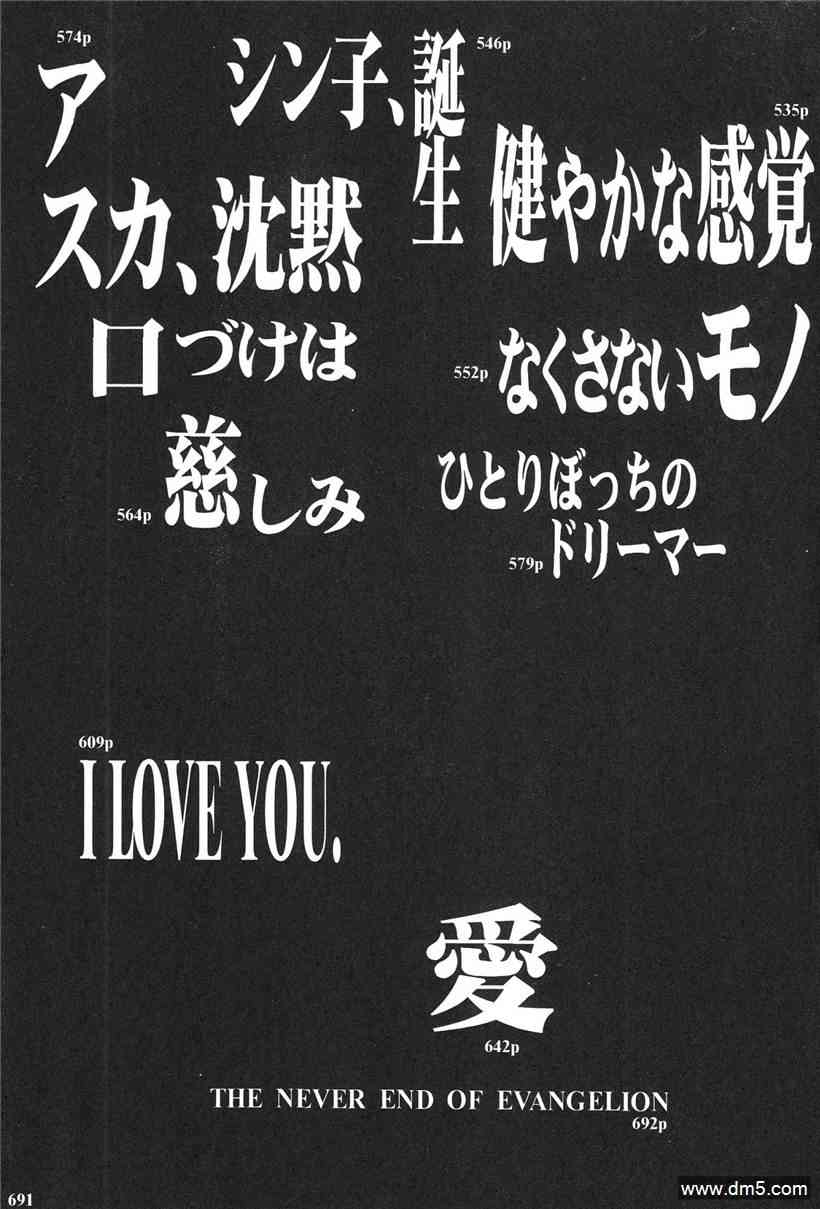 535p
健やかな感覚
シン子、誕生
546p
なくさないモノ
552p
口づけは
慈しみ
564p
574p
アスカ、沈黙
ひとりぼっちの
ドリーマー
579p
609p
I LOVE YOU.
愛
642p
THE NEVER END OF EVANGELION
692p
691
www.dm5.com